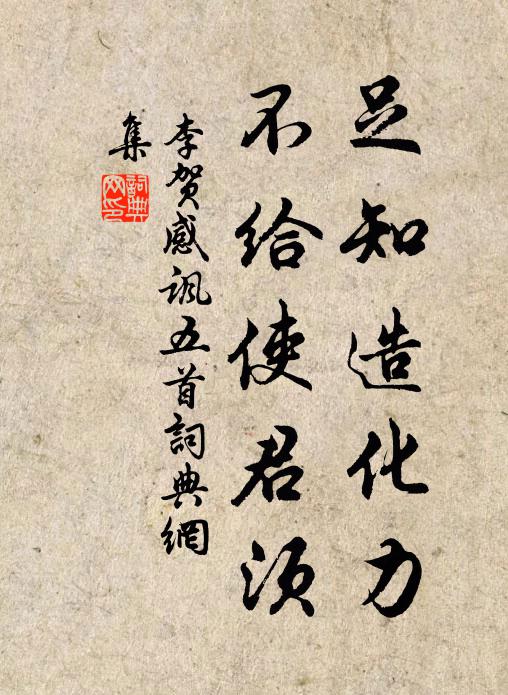 足知造化力
不给使君须
李贺感讽五首詞典網
集
詞典
网印